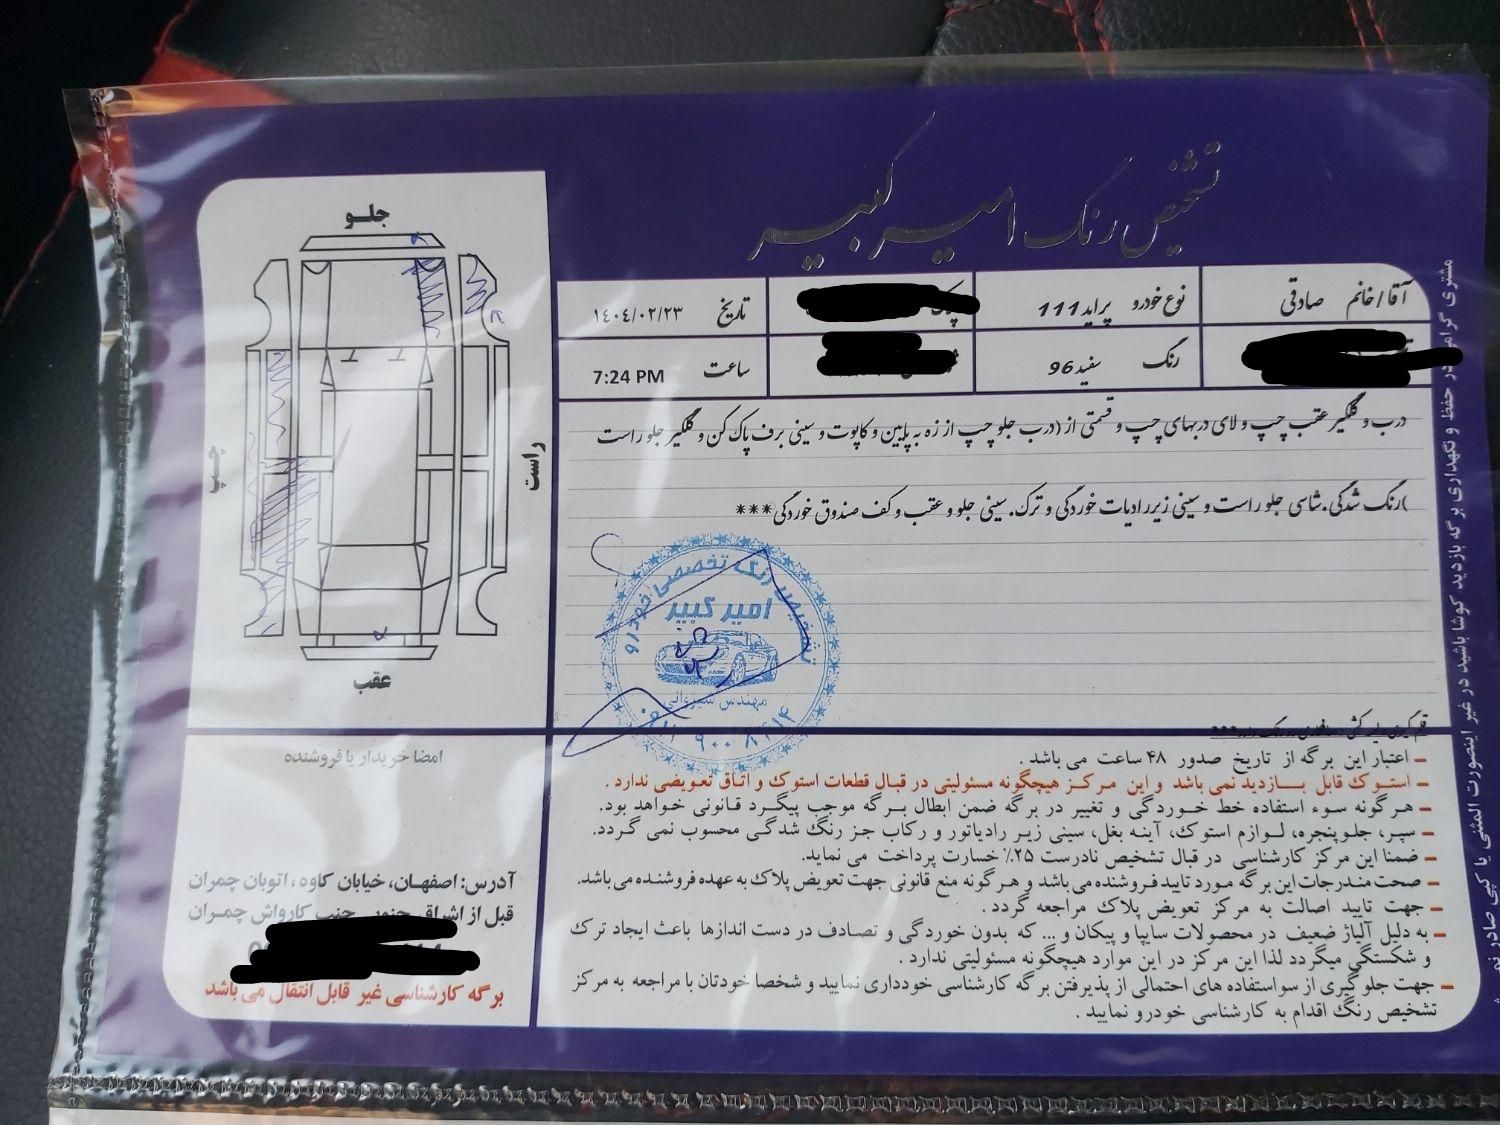 تشخیص رنگ امیرکبیر
آقا/خانم صادقی
نوع خودرو پراید 111
تاریخ ۱۴۰۴/۰۲/۲۳
رنگ سفید 96
ساعت 7:24 PM
درب و گلگیر عقب چپ و لای دربهای چپ و قسمتی از (درب جلو چپ از زه به پایین و کاپوت و سینی برف پاک کن و گلگیر جلو راست
)رنگ شدگی.شاسی جلو راست و سینی زیر رادیات خوردگی و ترک. سینی جلو و عقب و کف صندوق خوردگی***
جلو
چپ
راست
عقب
تشخیص رنگ تخصصی خودرو
امیر کبیر
مهندس شیروانی
امضا خریدار یا فروشنده
آدرس: اصفهان، خیابان کاوه، اتوبان چمران
قبل از اشراق جنوبی جنب کارواش چمران
برگه کارشناسی غیر قابل انتقال می باشد
– اعتبار این برگه از تاریخ صدور ۴۸ ساعت می باشد .
– استوک قابل بازدید نمی باشد و این مرکز هیچگونه مسئولیتی در قبال قطعات استوک و اتاق تعویضی ندارد .
– هرگونه سوء استفاده خط خوردگی و تغییر در برگه ضمن ابطال برگه موجب پیگرد قانونی خواهد بود.
– سپر، جلوپنجره، لوازم استوک، آینه بغل، سینی زیر رادیاتور و رکاب جز رنگ شدگی محسوب نمی گردد.
– ضمنا این مرکز کارشناسی در قبال تشخیص نادرست ۲۵٪ خسارت پرداخت می نماید.
– صحت مندرجات این برگه مورد تایید فروشنده می باشد و هرگونه منع قانونی جهت تعویض پلاک به عهده فروشنده می باشد.
– جهت تایید اصالت به مرکز تعویض پلاک مراجعه گردد .
– به دلیل آلیاژ ضعیف در محصولات سایپا و پیکان و... که بدون خوردگی و تصادف در دست اندازها باعث ایجاد ترک
و شکستگی میگردد لذا این مرکز در این موارد هیچگونه مسئولیتی ندارد .
– جهت جلوگیری از سواستفاده های احتمالی از پذیرفتن برگه کارشناسی خودداری نمایید و شخصا خودتان با مراجعه به مرکز
تشخیص رنگ اقدام به کارشناسی خودرو نمایید .
مشتری گرامی در حفظ و نگهداری برگه بازدید کوشا باشید در غیر اینصورت المثنی یا کپی صادر